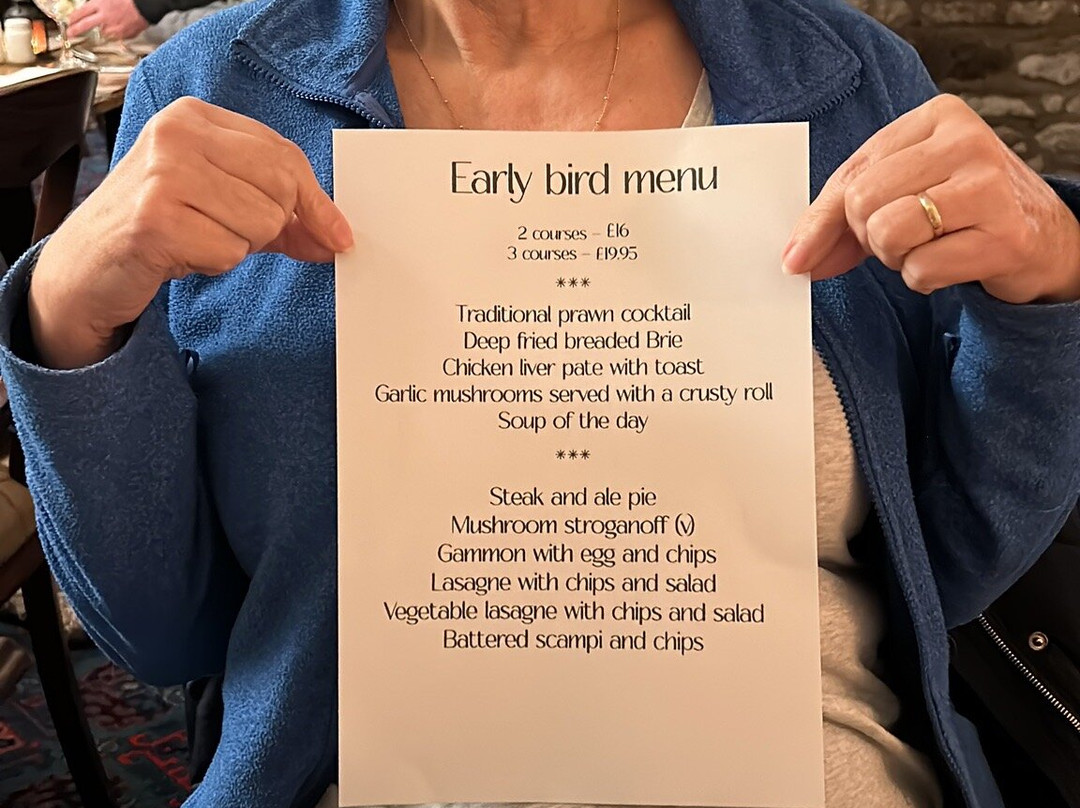 Early bird menu
2 courses – £16
3 courses – £19.95
***
Traditional prawn cocktail
Deep fried breaded Brie
Chicken liver pate with toast
Garlic mushrooms served with a crusty roll
Soup of the day
***
Steak and ale pie
Mushroom stroganoff (v)
Gammon with egg and chips
Lasagne with chips and salad
Vegetable lasagne with chips and salad
Battered scampi and chips